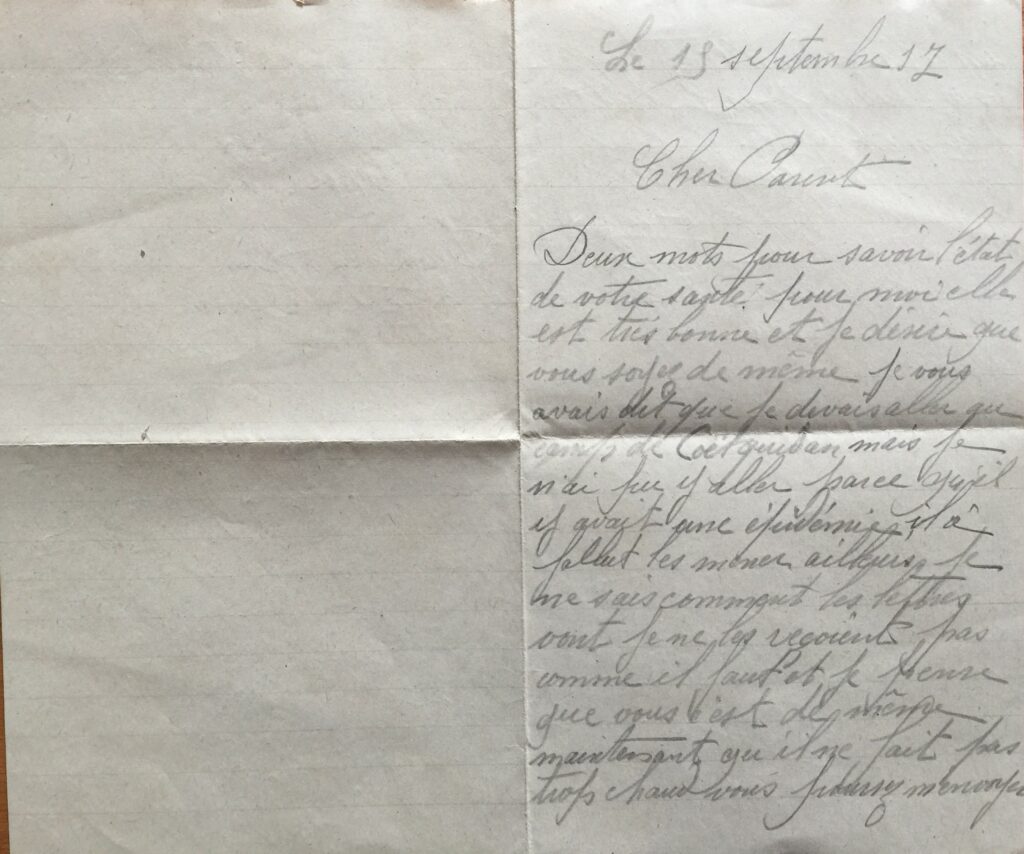 Le 15 septembre 17
Cher Parent
Deux mots pour savoir l'état
de votre santé. pour moi elle
est très bonne et je désire que
vous soyez de même je vous
avais dit que je devais aller au
camp de Coëtquidan mais je
n'ai pu y aller parce qu'il
y avait une épidémie, il a
fallut les mener ailleurs, je
ne sais comment les lettres
vont je ne les reçoient pas
comme il faut et je pense
que vous c'est de même
maintenant qu'il ne fait pas
trops chaud vous pourez menvoyer